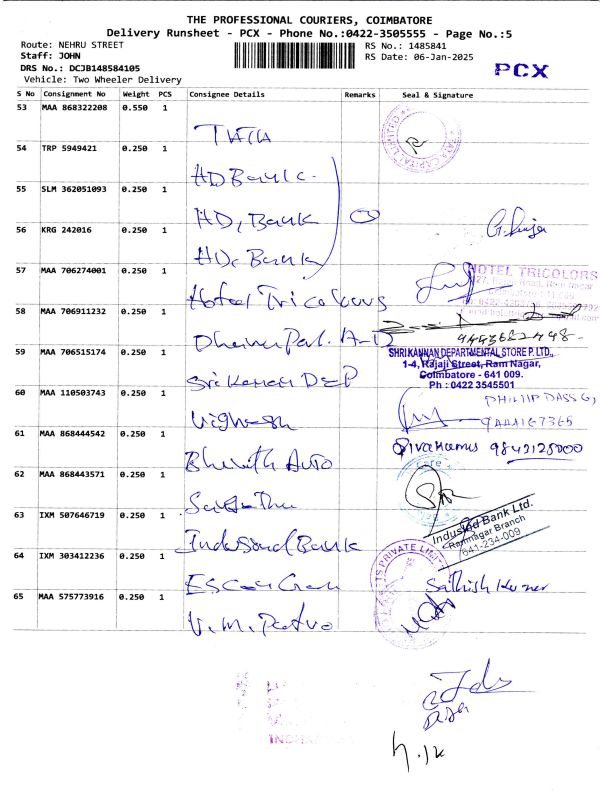 THE PROFESSIONAL COURIERS, COIMBATORE
Delivery Runsheet - PCX - Phone No.:0422-3505555 - Page No.:5
Route: NEHRU STREET
Staff: JOHN
DRS No.: DCJB148584105
Vehicle: Two Wheeler Delivery
RS No.: 1485841
RS Date: 06-Jan-2025
PCX
S No Consignment No Weight PCS Consignee Details Remarks Seal & Signature
53 MAA 868322208 0.550 1 TATA
TATA CAPITAL LIMITED
54 TRP 5949421 0.250 1 HD Bank
55 SLM 362051093 0.250 1 HD, Bank
56 KRG 242016 0.250 1 HD, Bank
57 MAA 706274001 0.250 1 Hotel Tricolours
HOTEL TRICOLORS
58 MAA 706911232 0.250 1
59 MAA 706515174 0.250 1 Sri Kannan DEP
SHRI KANNAN DEPARTMENTAL STORE P. LTD.,
1-4, Rajaji Street, Ram Nagar,
Coimbatore - 641 009.
Ph : 0422 3545501
60 MAA 110503743 0.250 1 Vignesh
PHILIP DASS G,
61 MAA 868444542 0.250 1 Bharath Auto
Sivakumar 9842128000
62 MAA 868443571 0.250 1
Care
63 IXM 507646719 0.250 1 Indusind Bank
IndusInd Bank Ltd.
Ramnagar Branch
641-234-009
64 IXM 303412236 0.250 1
Sathish Kumar
65 MAA 575773916 0.250 1 V.M.
TS PRIVATE LIMIT